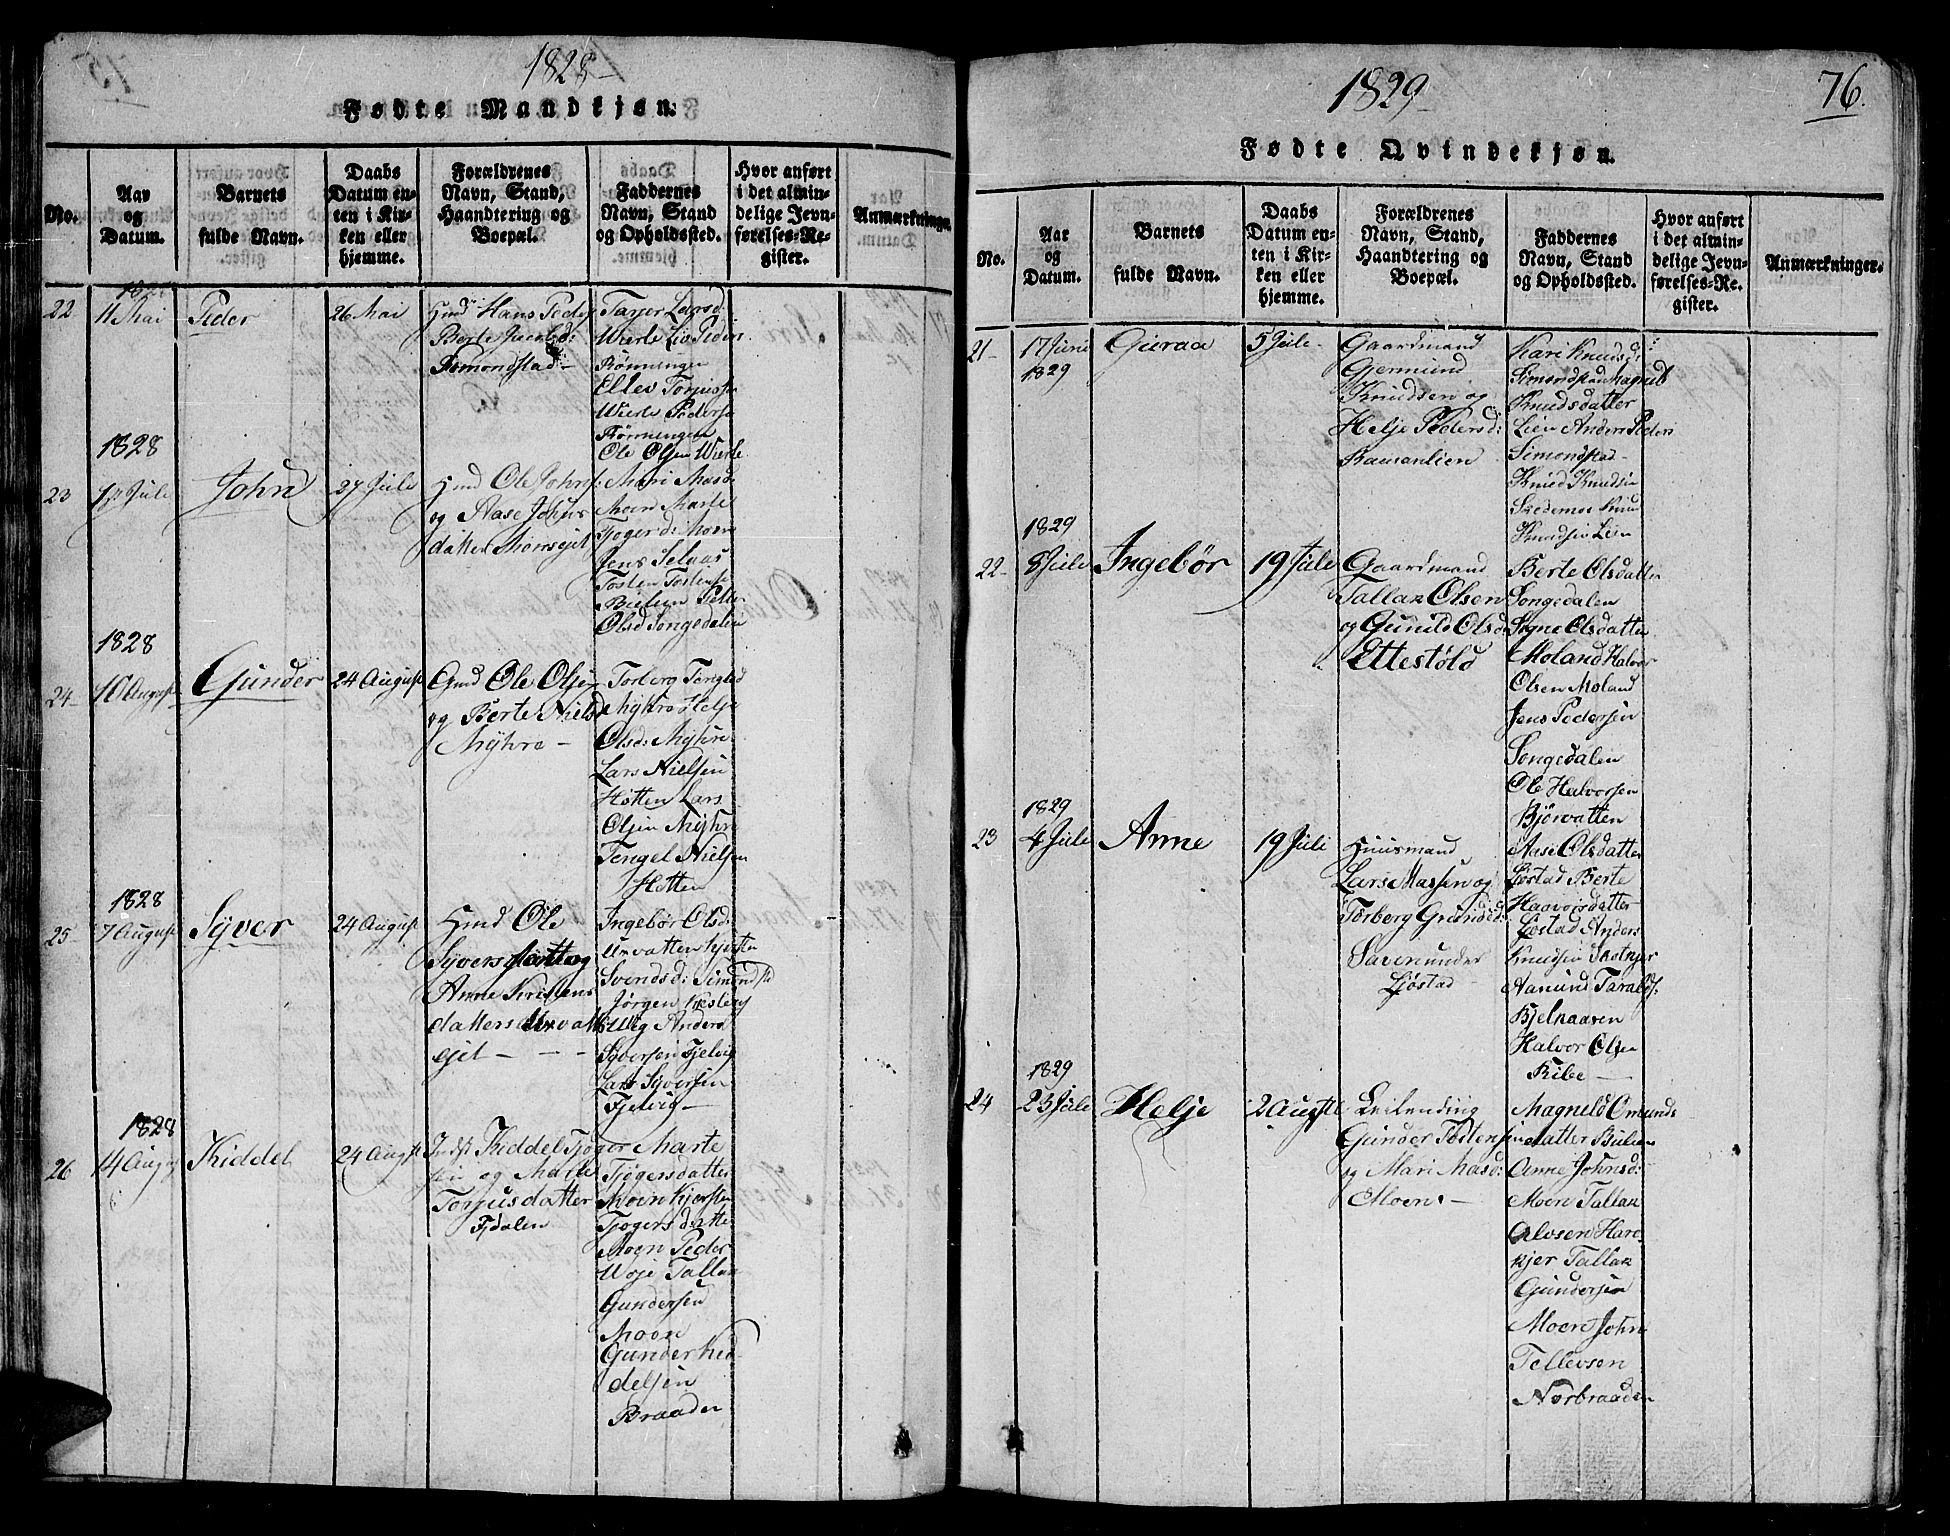 1828
Fødte Mandkjøn.
No.
Aar
og
Datum.
Barnets
fulde Navn.
Daabs
Datum en-
ten i Kir-
ken eller
hjemme.
Forældrenes
Navn, Stand,
Haandtering og
Boepæl.
Faddernes
Navn, Stand
og Opholdssted.
Hvor anført
i det almin-
delige Jevn-
førelses-Re-
gister.
Anmærkninge
22
11 Mai
Peder
26 Mai
Hmd Hans Peders
Berte Jacobsd:
Simondstad
Tarjer Larsd:
Wierle Liv Peders
Rønningen
Ellev Torjusen
Wierle Peder
Rønningen
Ole Olsen Wierle
1828
23
18 Jule
John
27 Jule
Hmd Ole Johns
og Aase Johns
datter Moensejet
Mari Masd:
Moen Marte
Tjøgersd: Moen
Jens Selaas
Tosten Tostens
Bielun
Olsd Songedalen
1828
24
10 August
Gunder
24 August
Gmd Ole Olsen
og Berte Nielsd
Myhre
Torberg Tengelsd
Myhre Helje
Olsd: Myhre
Lars Nielsen
Hotten Lars
Olsen Myhre
Tengel Nielsen
Hotten
1828
25
7 August
Syver
24 August
Hmd Ole
Syvers
Anne Kristens
datters Urvatt
ejet
Ingebør Olsd:
Urvatten Kjersten
Svendsd: Simondst
Jørgen
Anders
Syversen Tjelvig
Lars Syversen
Tjelvig
1828
26
14 August
Kiddel
24 August
Indst Kiddel Tjøger
sen og Malle
Torjusdatter
Fjdalen
Marte
Tjøgersdatter
Moen Kjersten
Tjøgersdatter
Moen Peder
Woje Tallak
Gundersen
Moen
Gunder Kid-
delsen
Braaden
1829
76.
Fødte Qvindekjøn.
No.
Aar
og
Datum.
Barnets
fulde Navn.
Daabs
Datum en-
ten i Kir-
ken eller
hjemme.
Forældrenes
Navn, Stand,
Haandtering og
Boepæl.
Faddernes
Navn, Stand
og Opholdssted.
Hvor anført
i det almin-
delige Jevn-
førelses-Re-
gister.
Anmærkninger.
21
17 Juni
1829
Guraa
5 Jule
Gaardmand
Gjermund
Knudsen og
Helje Pedersd:
Ramsaslien
Kari Knudsd:
Simondstad Magnild
Knudsdatter
Lien Anders Peders
Simondstad
Knud Knudsen
Skedemoe Knud
Knudsen Lien
1829
22
8 Jule
Ingebør
19 Jule
Gaardmand
Tallak Olsen
og Gunild Olsd
Ettestøld
Berte Olsdatter
Songedalen
Signe Olsdatter
Moland Halvor
Olsen Moland
Jens Pedersen
Songedalen
Ole Halvorsen
Bjørvatten
1829
23
4 Jule
Anne
19 Juli
Huusmand
Lars Massen og
Torberg Gundsd:
Saven under
Ljøstad
Aase Olsdatter
Ljøstad Berte
Haavorsdatter
Ljøstad Anders
Knudsen Skotkjer
Aanund Taralds:
Bjelkaasen
Halvor Olsen
Ribe
1829
24
23 Jule
Helje
2 August
Leilending
Gunder Tostensen
og Mari Masd:
Moen
Magnild Omunds
datter Bielun
Anne Johnsd:
Moen Tallak
Olvsen Hare-
kjer Tallak
Gundersen
Moen John
Tellevsen
Norbraaden